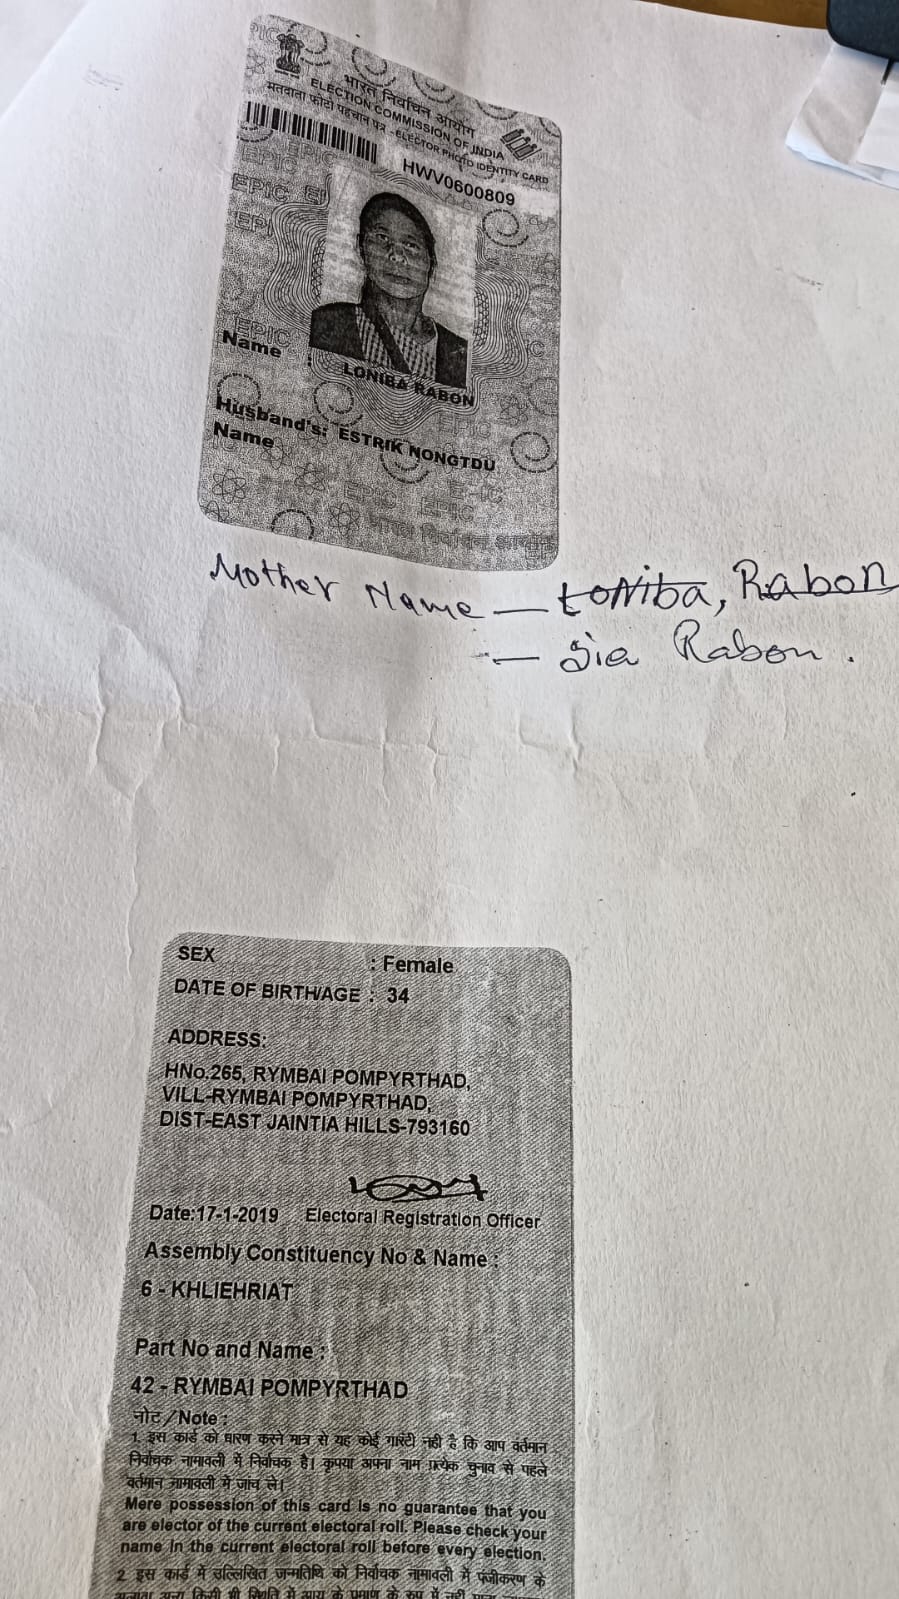 भारत निर्वाचन आयोग
ELECTION COMMISSION OF INDIA
मतदाता फोटो पहचान पत्र - ELECTOR PHOTO IDENTITY CARD
HWV0600809
Name : LONIBA RABON
Husband's: ESTRIK NONGTDU
Name
Mother Name — Loniba, Rabon
— Sia Rabon.
SEX : Female
DATE OF BIRTH/AGE : 34
ADDRESS:
HNo.265, RYMBAI POMPYRTHAD,
VILL-RYMBAI POMPYRTHAD,
DIST-EAST JAINTIA HILLS-793160
Date:17-1-2019 Electoral Registration Officer
Assembly Constituency No & Name :
6 - KHLIEHRIAT
Part No and Name :
42 - RYMBAI POMPYRTHAD
नोट/Note :
1. इस कार्ड को धारण करने मात्र से यह कोई गारंटी नही है कि आप वर्तमान
निर्वाचक नामावली में निर्वाचक है। कृपया अपना नाम प्रत्येक चुनाव से पहले
वर्तमान नामावली में जांच ले।
Mere possession of this card is no guarantee that you
are elector of the current electoral roll. Please check your
name in the current electoral roll before every election.
2 इस कार्ड में उल्लिखित जन्मतिथि को निर्वाचक नामावली में पंजीकरण के